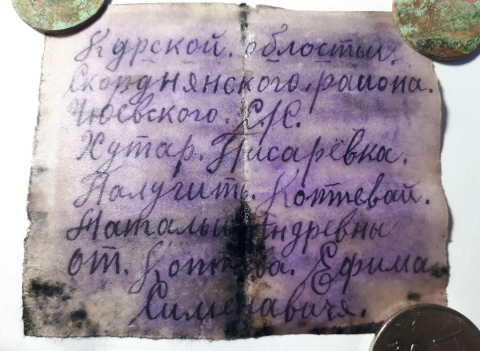 Курской. облостьи.
Скороднянского. района.
Чюевского. С/С.
Хутар. Писарёвка.
Палучить. Коптевай.
Натальи Андревны
от. Коптева. Ефима
Сименавичя.